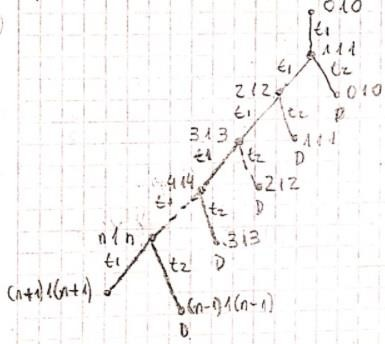 )
010
t₁
111
t₁ t₂
212 010
D
t₁ t₂
111
D
313
t₁ t₂
212
D
414
t₁ t₂
313
D
n1n
t₁ t₂
(n+1)1(n+1)
(n-1)1(n-1)
D